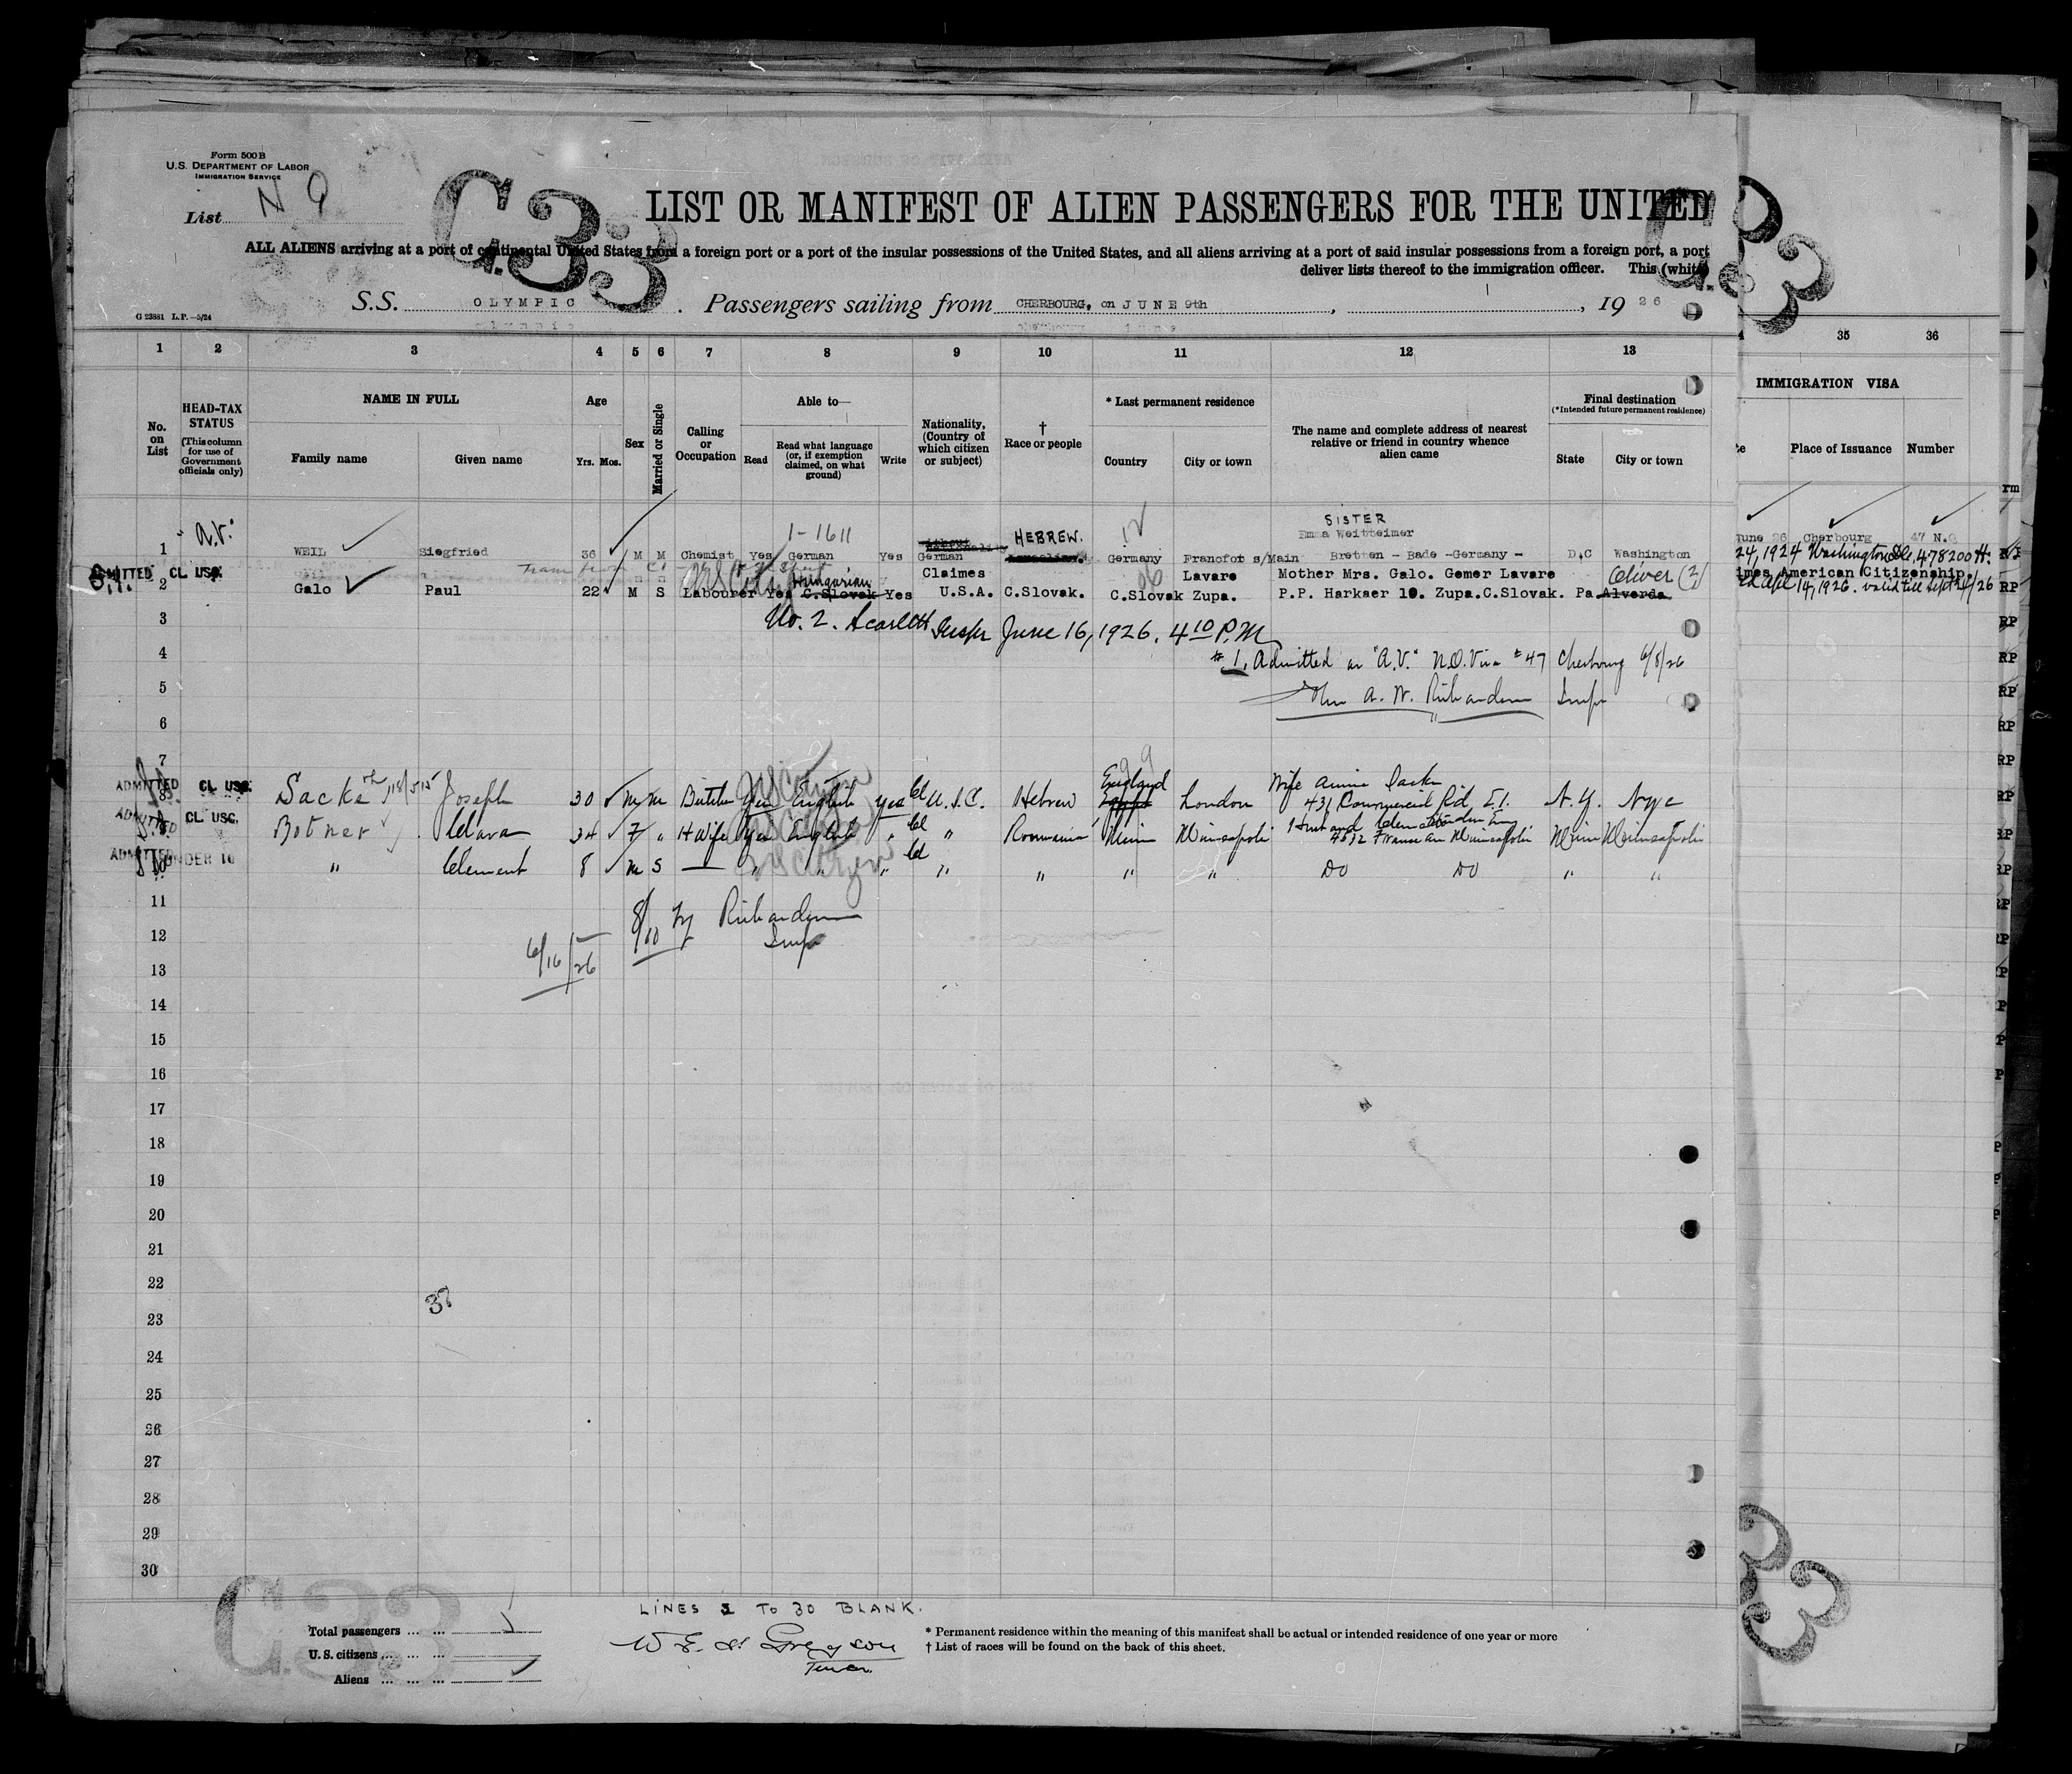 Form 500 B
U.S. DEPARTMENT OF LABOR
IMMIGRATION SERVICE
List N 9
G.33
LIST OR MANIFEST OF ALIEN PASSENGERS FOR THE UNITED
ALL ALIENS arriving at a port of continental United States from a foreign port or a port of the insular possessions of the United States, and all aliens arriving at a port of said insular possessions from a foreign port, a port
deliver lists thereof to the immigration officer. This (white
S.S. OLYMPIC. Passengers sailing from CHERBOURG, on JUNE 9th, 1926
G 23881 L.P.—5/24
1 2 3 4 5 6 7 8 9 10 11 12 13 35 36
No. on List
HEAD-TAX STATUS
(This column for use of Government officials only)
NAME IN FULL
Family name Given name
Age
Yrs. Mos.
Sex
Married or Single
Calling or Occupation
Able to—
Read
Read what language (or, if exemption claimed, on what ground)
Write
Nationality, (Country of which citizen or subject)
† Race or people
* Last permanent residence
Country City or town
The name and complete address of nearest relative or friend in country whence alien came
Final destination
(*Intended future permanent residence)
State City or town
IMMIGRATION VISA
Place of Issuance Number
"A.V." 1-1611 HEBREW. SISTER
Emma Weittheimer
1 WEIL Siegfried 36 M M Chemist Yes German Yes German Germany Francfort s/Main Bretten - Bade -Germany - D.C Washington
June 26 Cherbourg 47 N.Q
24, 1924 Washington D.C. 478200 H.
American Citizenship.
14, 1926. valid till Sept 24/26
ADMITTED CL USC.
Hungarian Claimes Lavare Mother Mrs. Galo. Gemer Lavare Oliver (2)
2 Galo Paul 22 M S Labourer Yes C.Slovak Yes U.S.A. C.Slovak. C.Slovak Zupa. P.P. Harkaer 10. Zupa.C.Slovak. Pa Alverda
3 No. 2. Scarlett Inspr June 16, 1926. 4 10 P.M
4 # 1, Admitted as "A.V." N.Q. Visa # 47 Cherbourg 6/8/26
5 A. W. Richardson Inspr
6
7
ADMITTED CL USC.
8 Sacks Joseph 30 M M Butcher Yes English Yes Cl U.S.C. Hebrew England London Wife Annie Sacks
431 Commercial Rd, E.1. N.Y. NYC
ADMITTED CL USC.
9 Botner Clara 34 F " H Wife Yes English " Cl " Roumania Minn Minneapolis Husband Minneapolis Minn Minneapolis
ADMITTED UNDER 16
10 " Clement 8 M S — " " " Cl " " " " Do Do " "
11 8/10 by Richardson
12 Inspr
6/16/26
13
14
15
16
17
18
19
20
21
22
37
23
24
25
26
27
28
29
30
G.33
LINES 3 TO 30 BLANK.
Total passengers
U. S. citizens
Aliens
* Permanent residence within the meaning of this manifest shall be actual or intended residence of one year or more
† List of races will be found on the back of this sheet.